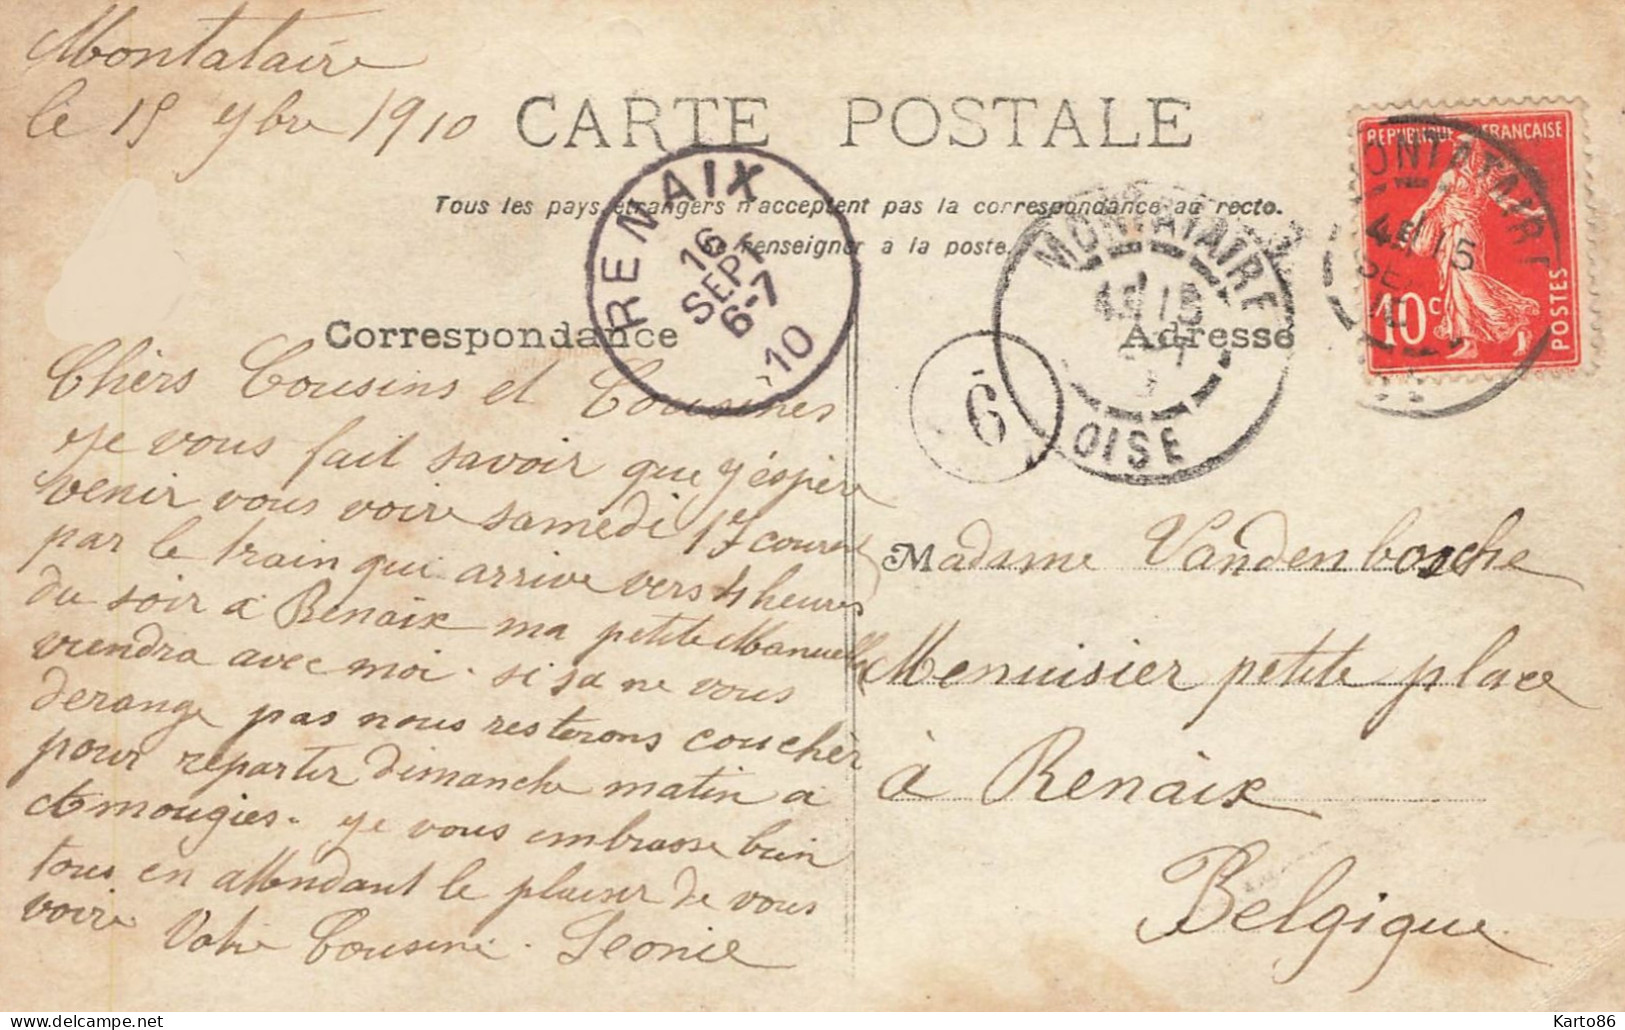 Montataire
le 15 7bre 1910
CARTE POSTALE
Tous les pays étrangers n'acceptent pas la correspondance au recto.
Se renseigner à la poste.
RENAIX
16
SEPT
6-7
10
MONTATAIRE
OISE
6
REPUBLIQUE FRANCAISE
10c
POSTES
MONTATAIRE
Correspondance
Adresse
Chèrs Cousins et Cousines
Je vous fait savoir que j'éspère
venir vous voire samedi 17 courent
par le train qui arrive vers 4 heures
du soir a Renaix ma petite Manuella
viendra avec moi. si sa ne vous
derange pas nous resterons couchèr
pour repartir dimanche matin a
Amougies. je vous embrasse bien
tous en attendant le plaisir de vous
voire Votre Cousine. Leonie
Madame Vandenbosche
Menuisier petite place
à Renaix
Belgique
delcampe.net
Karto86